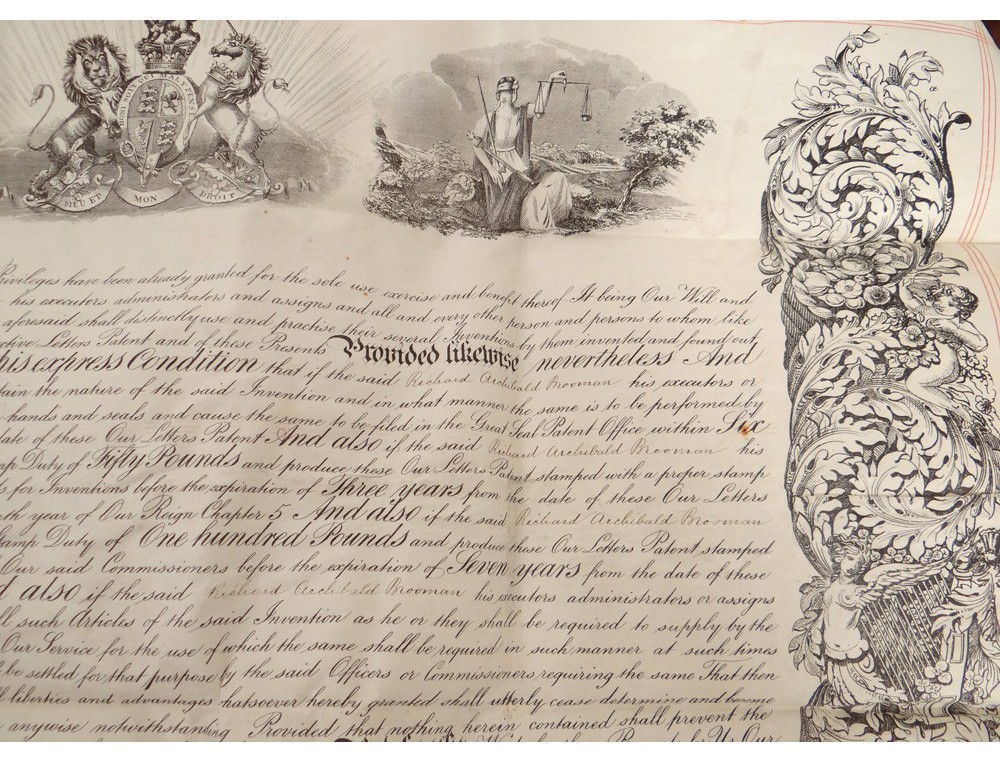 HONI SOIT QUI MAL Y PENSE
DIEU ET MON DROIT
Privileges have been already granted for the sole use exercise and benefit thereof. It being Our Will and
his executors administrators and assigns and all and every other person and persons to whom like
aforesaid shall distinctly use and practise their several Inventions by them invented and found out
ctive Letters Patent and of these Presents Provided likewise nevertheless And
his express Condition that if the said Richard Archibald Brooman his executors or
tain the nature of the said Invention and in what manner the same is to be performed by
hands and seals and cause the same to be filed in the Great Seal Patent Office within Six
date of these Our Letters Patent And also if the said Richard Archibald Brooman his
mp Duty of Fifty Pounds and produce these Our Letters Patent stamped with a proper stamp
s for Inventions before the expiration of Three years from the date of these Our Letters
th year of Our Reign Chapter 5 And also if the said Richard Archibald Brooman
tamp Duty of One hundred Pounds and produce these Our Letters Patent stamped
Our said Commissioners before the expiration of Seven years from the date of these
d also if the said Richard Archibald Brooman his executors administrators or assigns
ll such Articles of the said Invention as he or they shall be required to supply by the
Our Service for the use of which the same shall be required in such manner at such times
l be settled for that purpose by the said Officers or Commissioners requiring the same That then
ll liberties and advantages hatsoever hereby granted shall utterly cease determine and become
anywise notwithstanding Provided that nothing herein contained shall prevent the
Us Our